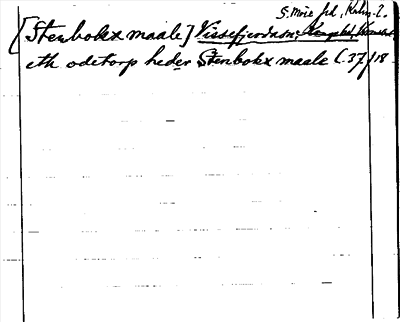 S. Möre hd, Kalm. l.
[Stenbokx maale] Vissefjerda sn;
eth ödetorp heder Stenbokx maale (. 37/18